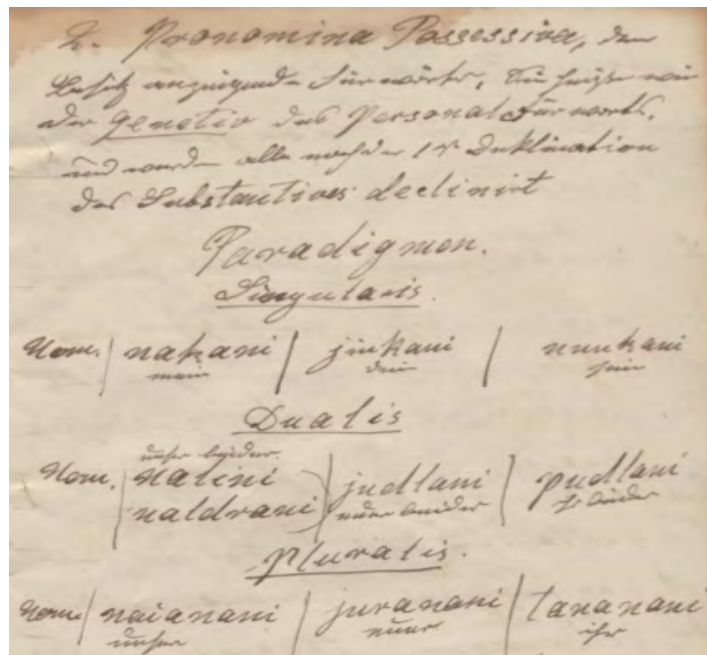 2. Pronomina Possessiva, den
Besitz anzeigende Fürwörter, sie heißen wie
der Genetiv des Personalfürworts,
und werden alle nach der 1n Deklination
des Substantives declinirt
Paradigmen.
Singularis.
Nom. | nakani | jinkani | nunkani
mein dein sein
Dualis
unser beider.
Nom. | nalini | judlani | pudlani
naldrani euer beider ihr beider
Pluralis.
Nom. | naianani | juranani | tananani
unser euer ihr